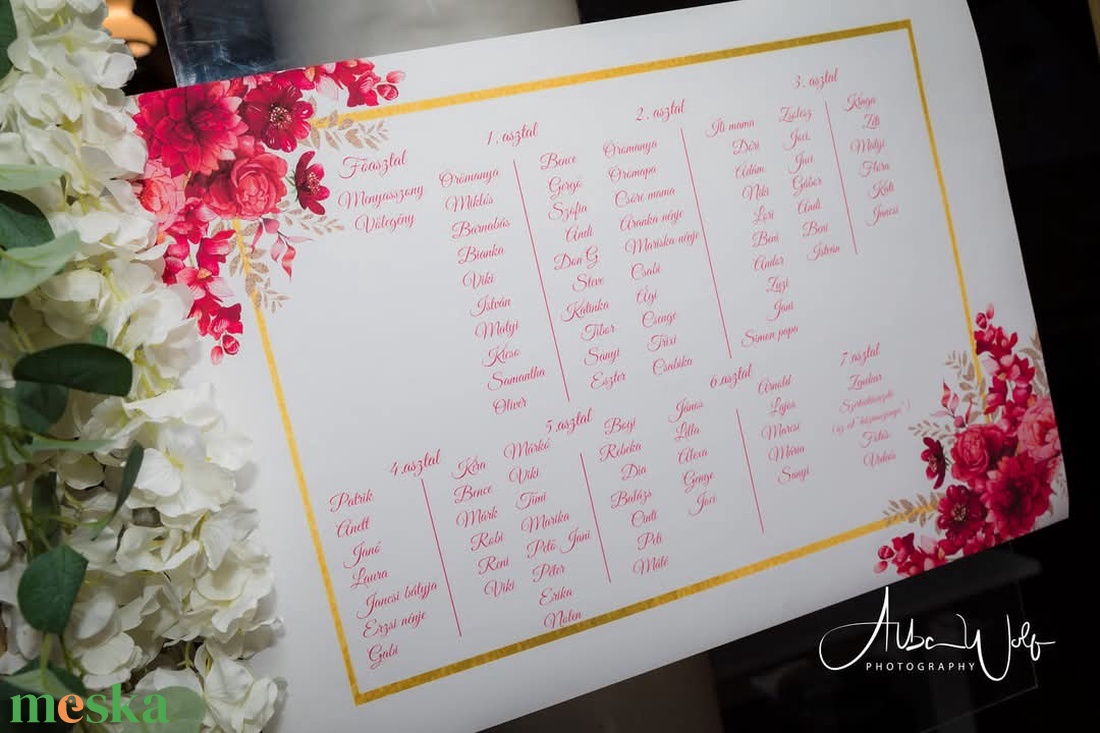 Főasztal
Menyasszony
Vőlegény
1. asztal
Örömanya
Miklós
Barnabás
Bianka
Viki
István
Matyi
Kicso
Samantha
Olivér
Bence
Gergő
Szofia
Andi
Don G
Steve
Katinka
Tibor
Sanyi
Eszter
2. asztal
Örömanya
Örömapa
Csöre mama
Aranka nénje
Mariska nénje
Csabi
Ági
Csenge
Trixi
Csabika
3. asztal
Ili mama
Dóri
Ádám
Niki
Lori
Beni
Andor
Zuzi
Jani
Simon papa
Zsolesz
Joci
Juci
Gábor
Andi
Beni
István
Kinga
Ziti
Matyi
Flóra
Kati
Jancsi
4. asztal
Patrik
Anett
Janó
Laura
Jancsi bátyja
Erzsi nénje
Gabi
Kíra
Bence
Márk
Robi
Reni
Viki
5. asztal
Márkó
Viki
Timi
Marika
Pető Jani
Péter
Erika
Nolen
Bogi
Rebeka
Dia
Balázs
Cinti
Peti
Máté
6. asztal
János
Lilla
Alexa
Genge
Joci
Arnold
Lajos
Marcsi
Mária
Sanyi
7. asztal
Zenekar
Fotós
Videós
Alba Wolf
PHOTOGRAPHY
meska